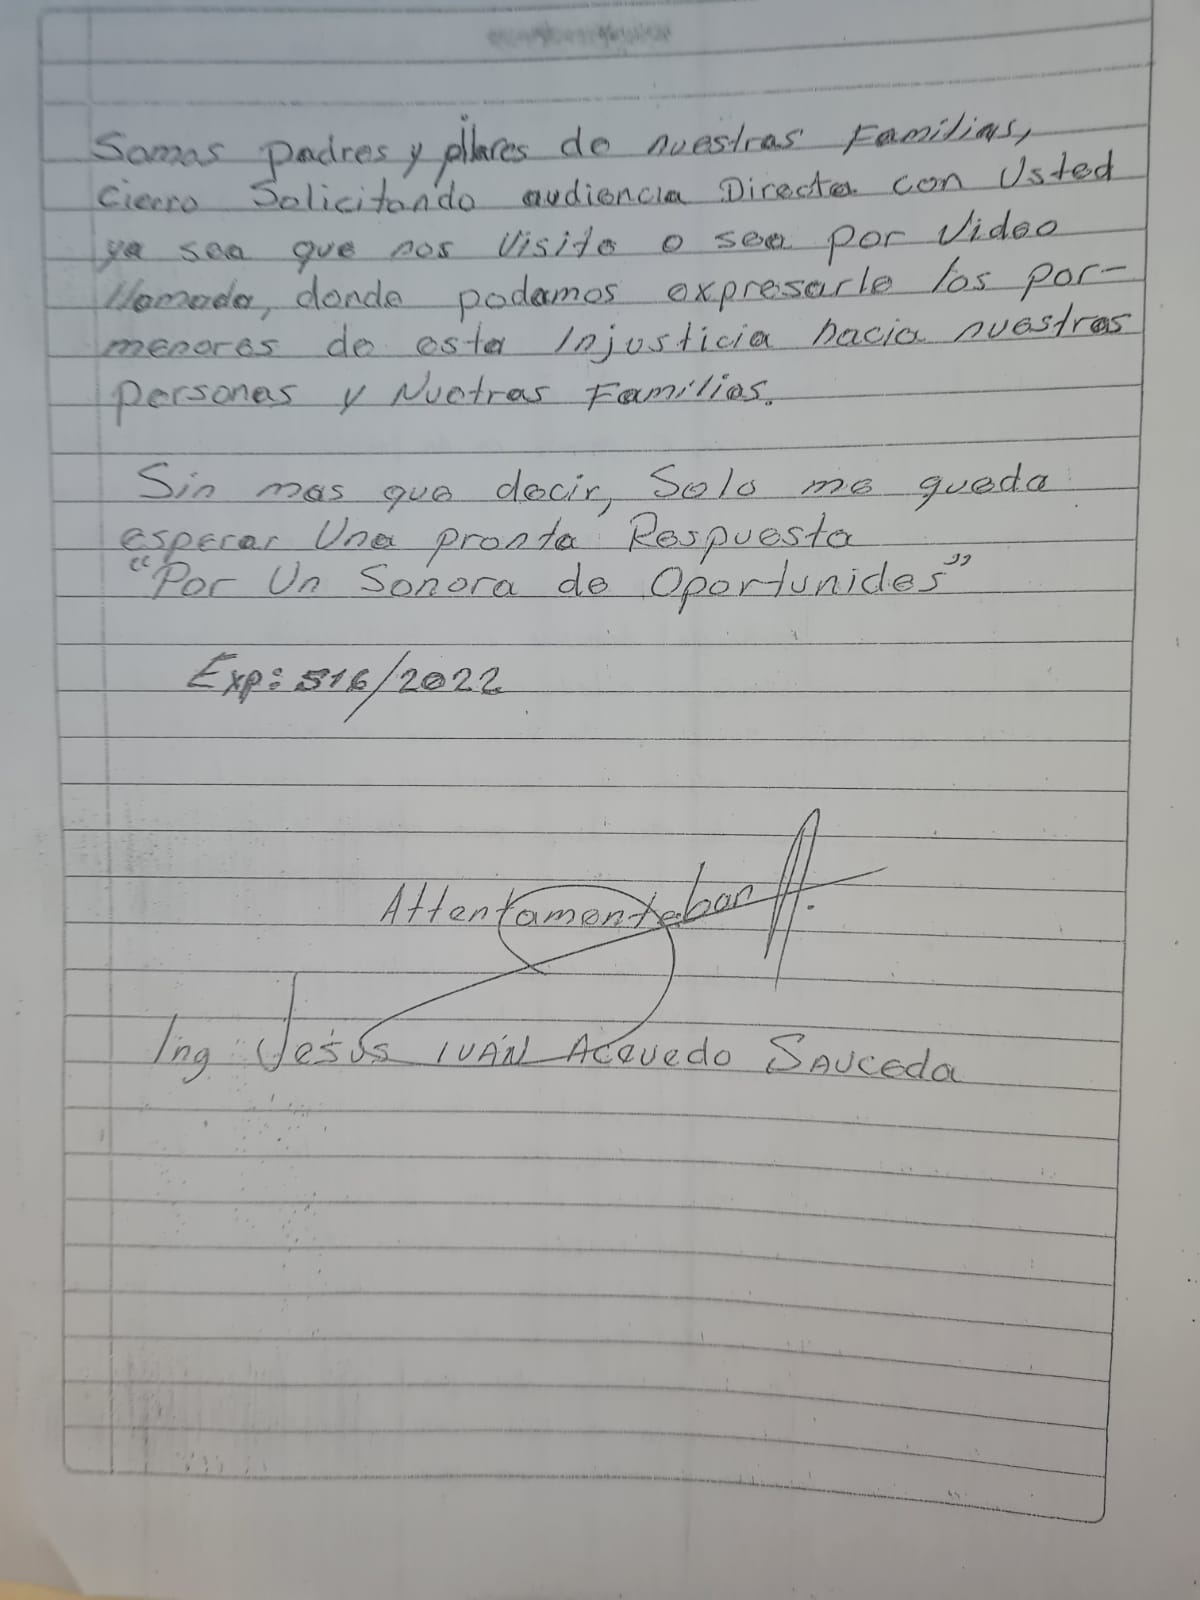 Somos padres y pilares de nuestras Familias,
cierro Solicitando audiencia Directa con Usted
ya sea que nos Visite o sea por Video
llamada, donde podamos expresarle los por-
menores de esta Injusticia hacia nuestras
personas y Nuetras Familias.
Sin mas que decir, Solo me queda
esperar Una pronta Respuesta
"Por Un Sonora de Oportunides"
Exp: 516/2022
Attentamente
Ing Jesús IVÁN Acevedo SAUCEDA